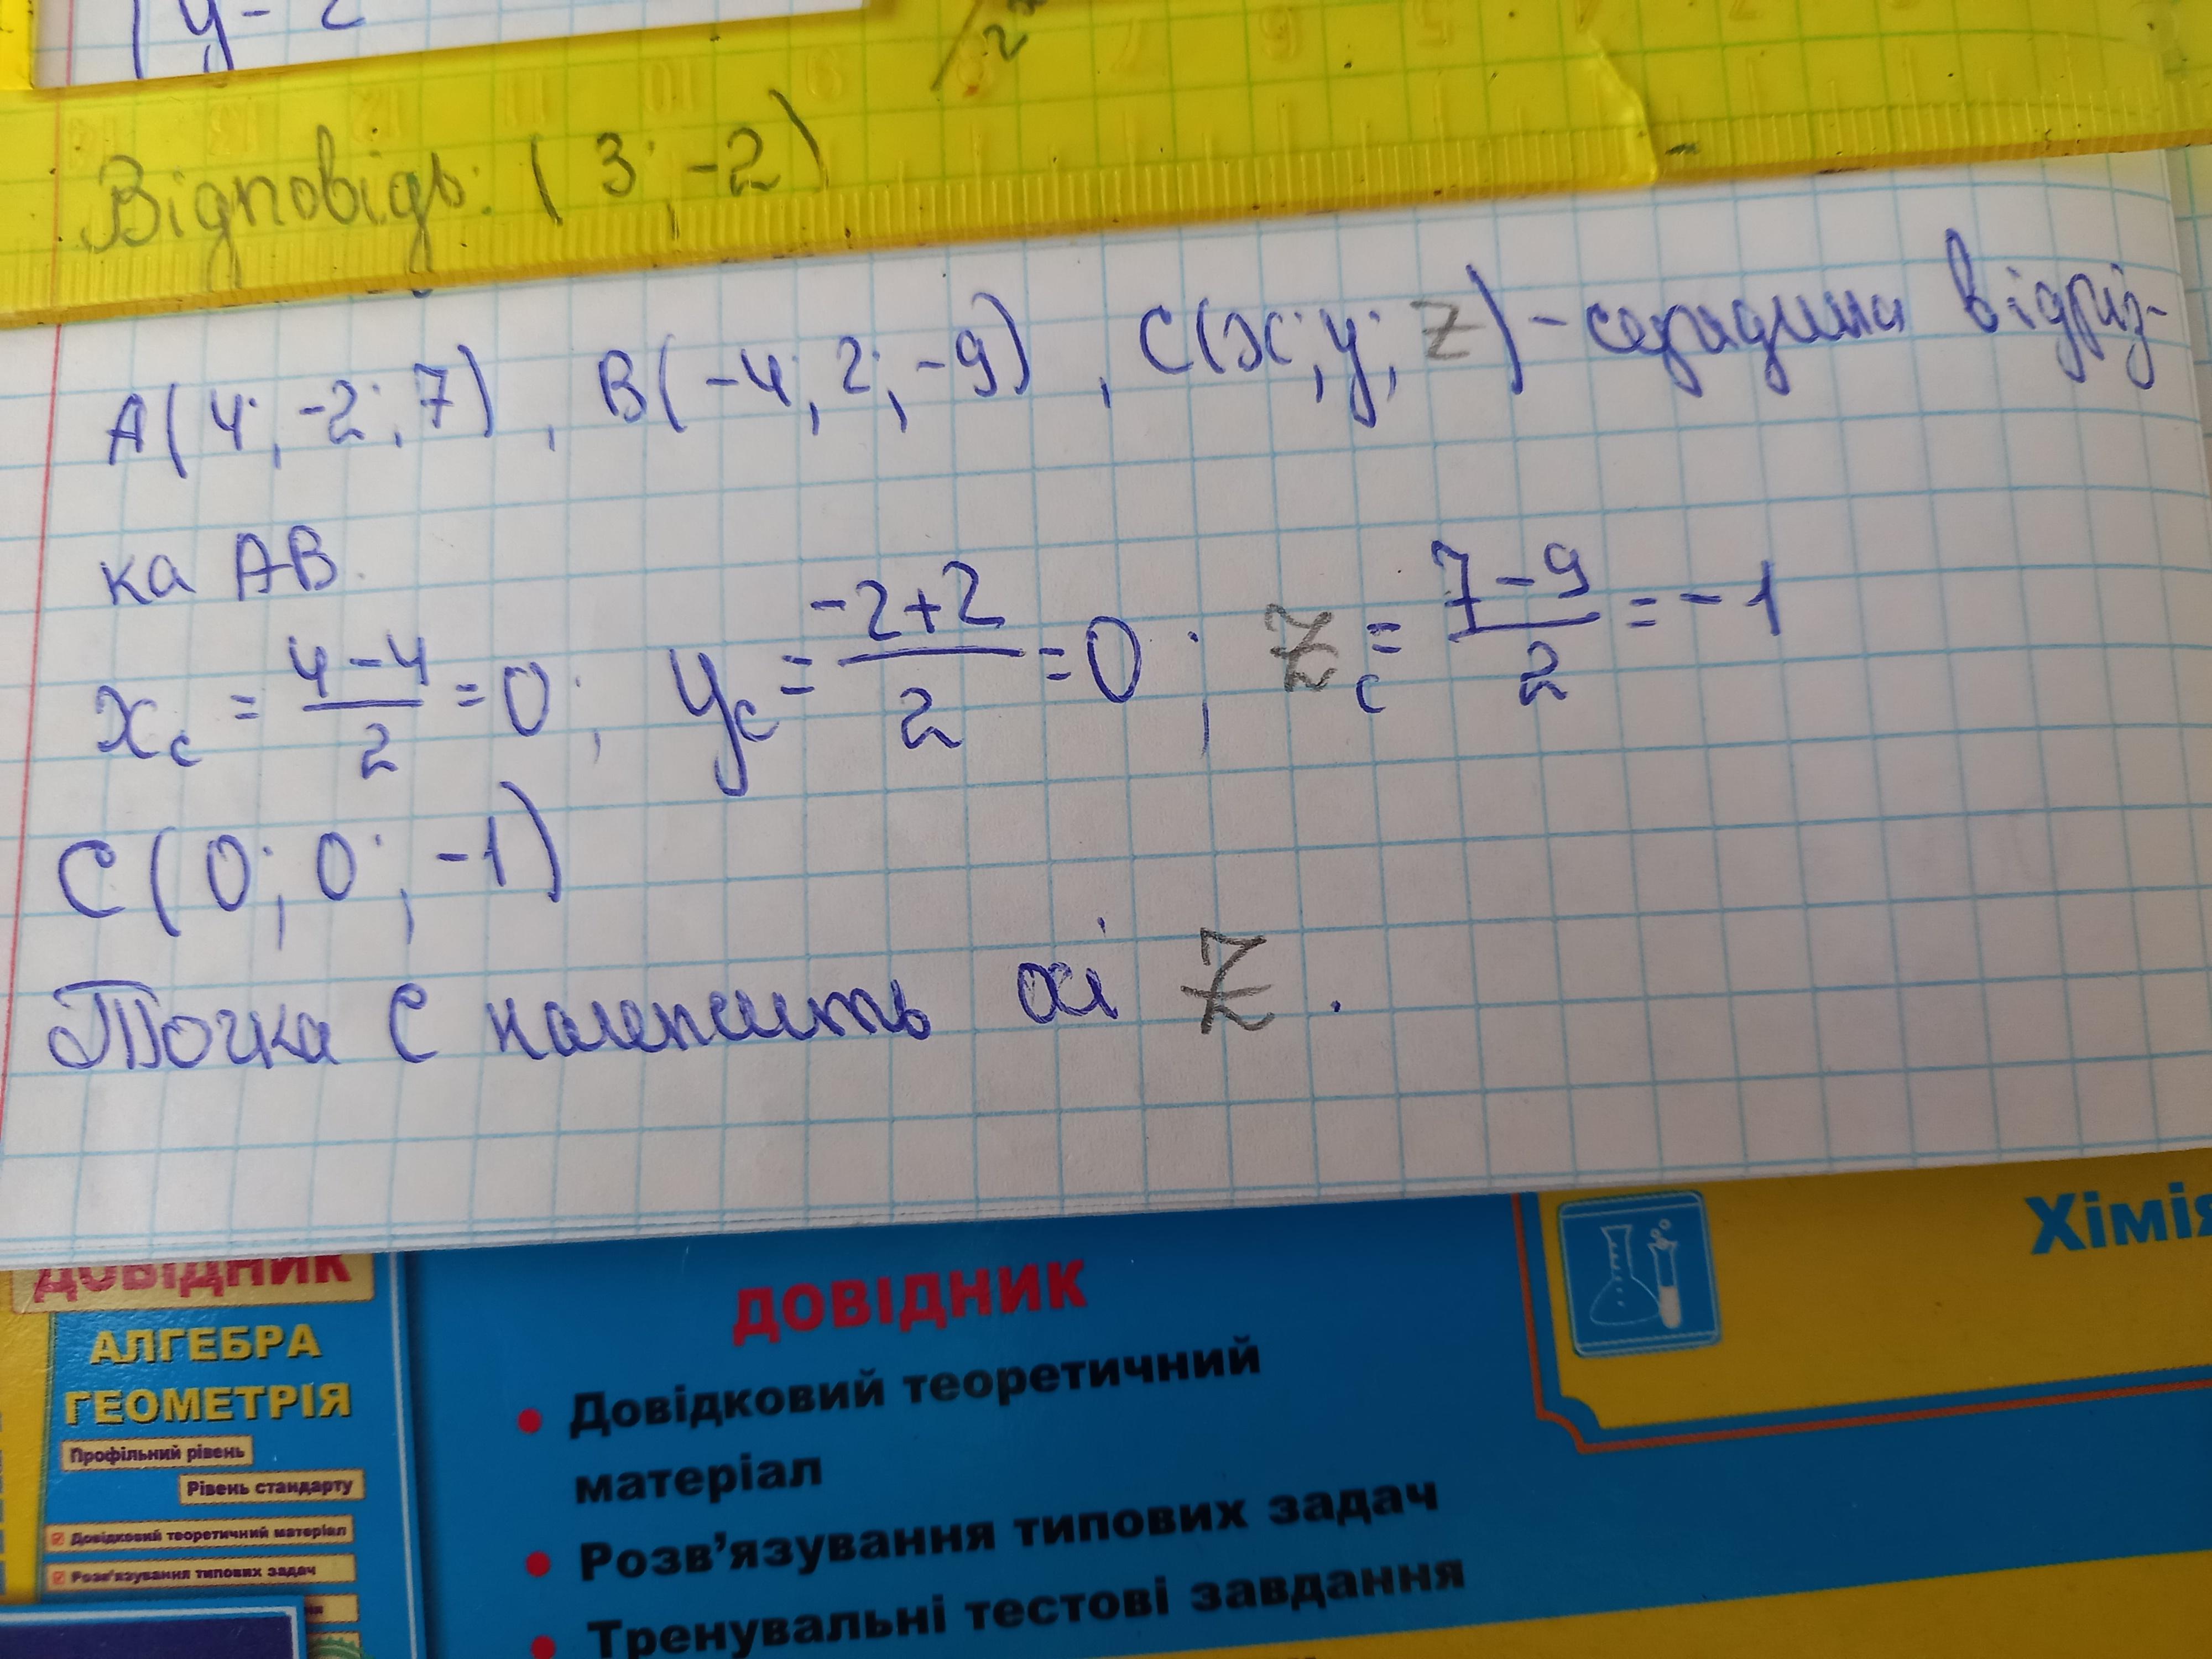 y - 2
Відповідь: (3; -2)
A(4; -2; 7), B(-4; 2; -9), C(x; y; z) - середина відріз-
ка AB.
x_c = \frac{4-4}{2} = 0; y_c = \frac{-2+2}{2} = 0; z_c = \frac{7-9}{2} = -1
C(0; 0; -1)
Точка C належить осі Z.
Хімія
ДОВІДНИК
АЛГЕБРА
ГЕОМЕТРІЯ
Профільний рівень
Рівень стандарту
Довідковий теоретичний матеріал
Розв'язування типових задач
ДОВІДНИК
• Довідковий теоретичний
матеріал
• Розв'язування типових задач
• Тренувальні тестові завдання